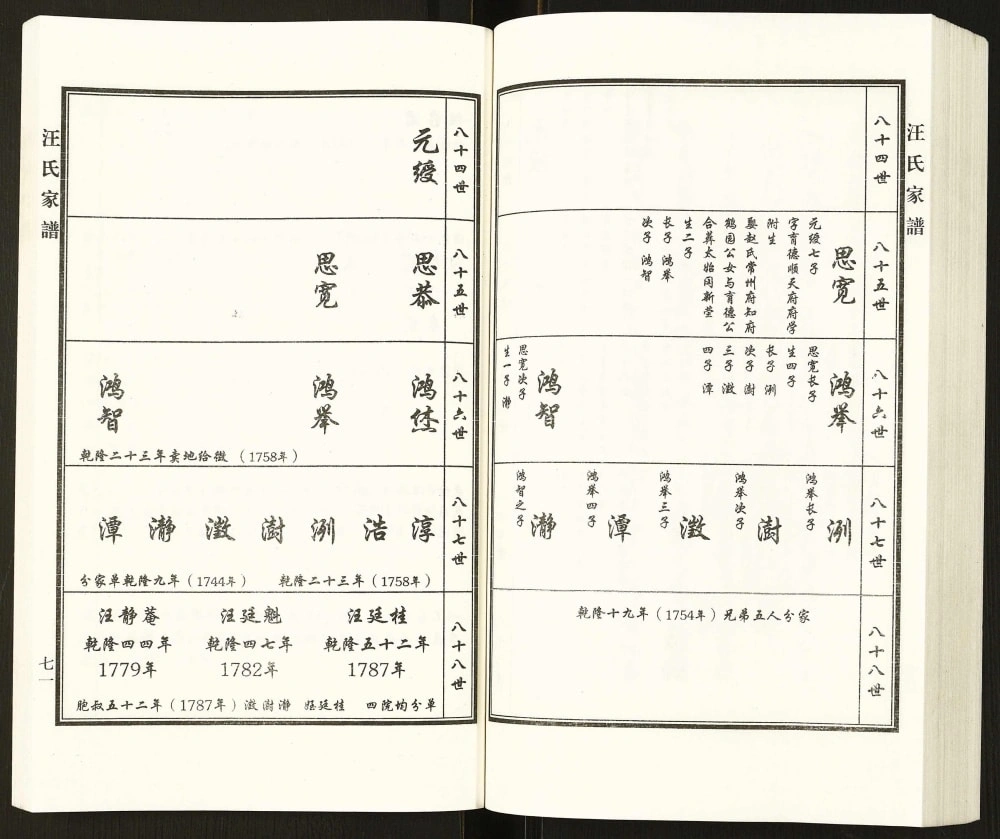 汪氏家譜
八十四世
八十五世
思宽
元绶七子
字育德顺天府府学
附生
娶赵氏常州府知府
鹤园公女与育德公
合葬太始闰新茔
生二子
长子 鸿举
次子 鸿智
八十六世
鸿举
思宽长子
生四子
长子 洌
次子 澍
三子 澂
四子 潭
鸿智
思宽次子
生一子 瀞
八十七世
洌
鸿举长子
澍
鸿举次子
澂
鸿举三子
潭
鸿举四子
瀞
鸿智之子
八十八世
乾隆十九年(1754年)兄弟五人分家
八十四世
元绶
八十五世
思恭
思宽
八十六世
鸿烋
鸿举
鸿智
乾隆二十三年卖地给徵 (1758年)
八十七世
淳
浩
洌
澍
澂
瀞
潭
分家单乾隆九年(1744年) 乾隆二十三年(1758年)
八十八世
汪廷桂
乾隆五十二年
1787年
汪廷魁
乾隆四七年
1782年
汪静菴
乾隆四四年
1779年
胞叔五十二年(1787年)澂澍瀞 侄廷桂 四院均分单
汪氏家譜
七一